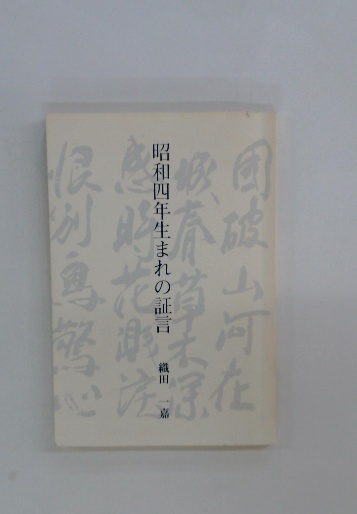 昭和四年生まれの証言
織田 一嘉
国破山河在
城春草木深
感時花濺涙
恨別鳥驚心